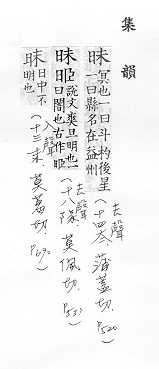 集韻
昧冥也一曰斗杓後星
一曰縣名在益州
去聲
(十四泰，蒲蓋切，p520)
昧䀛說文爽旦明也一
曰闇也古作䀛
去聲
(十八隊，莫佩切，p531)
昧日中不
明也
入聲
(十三末，莫葛切，p690)